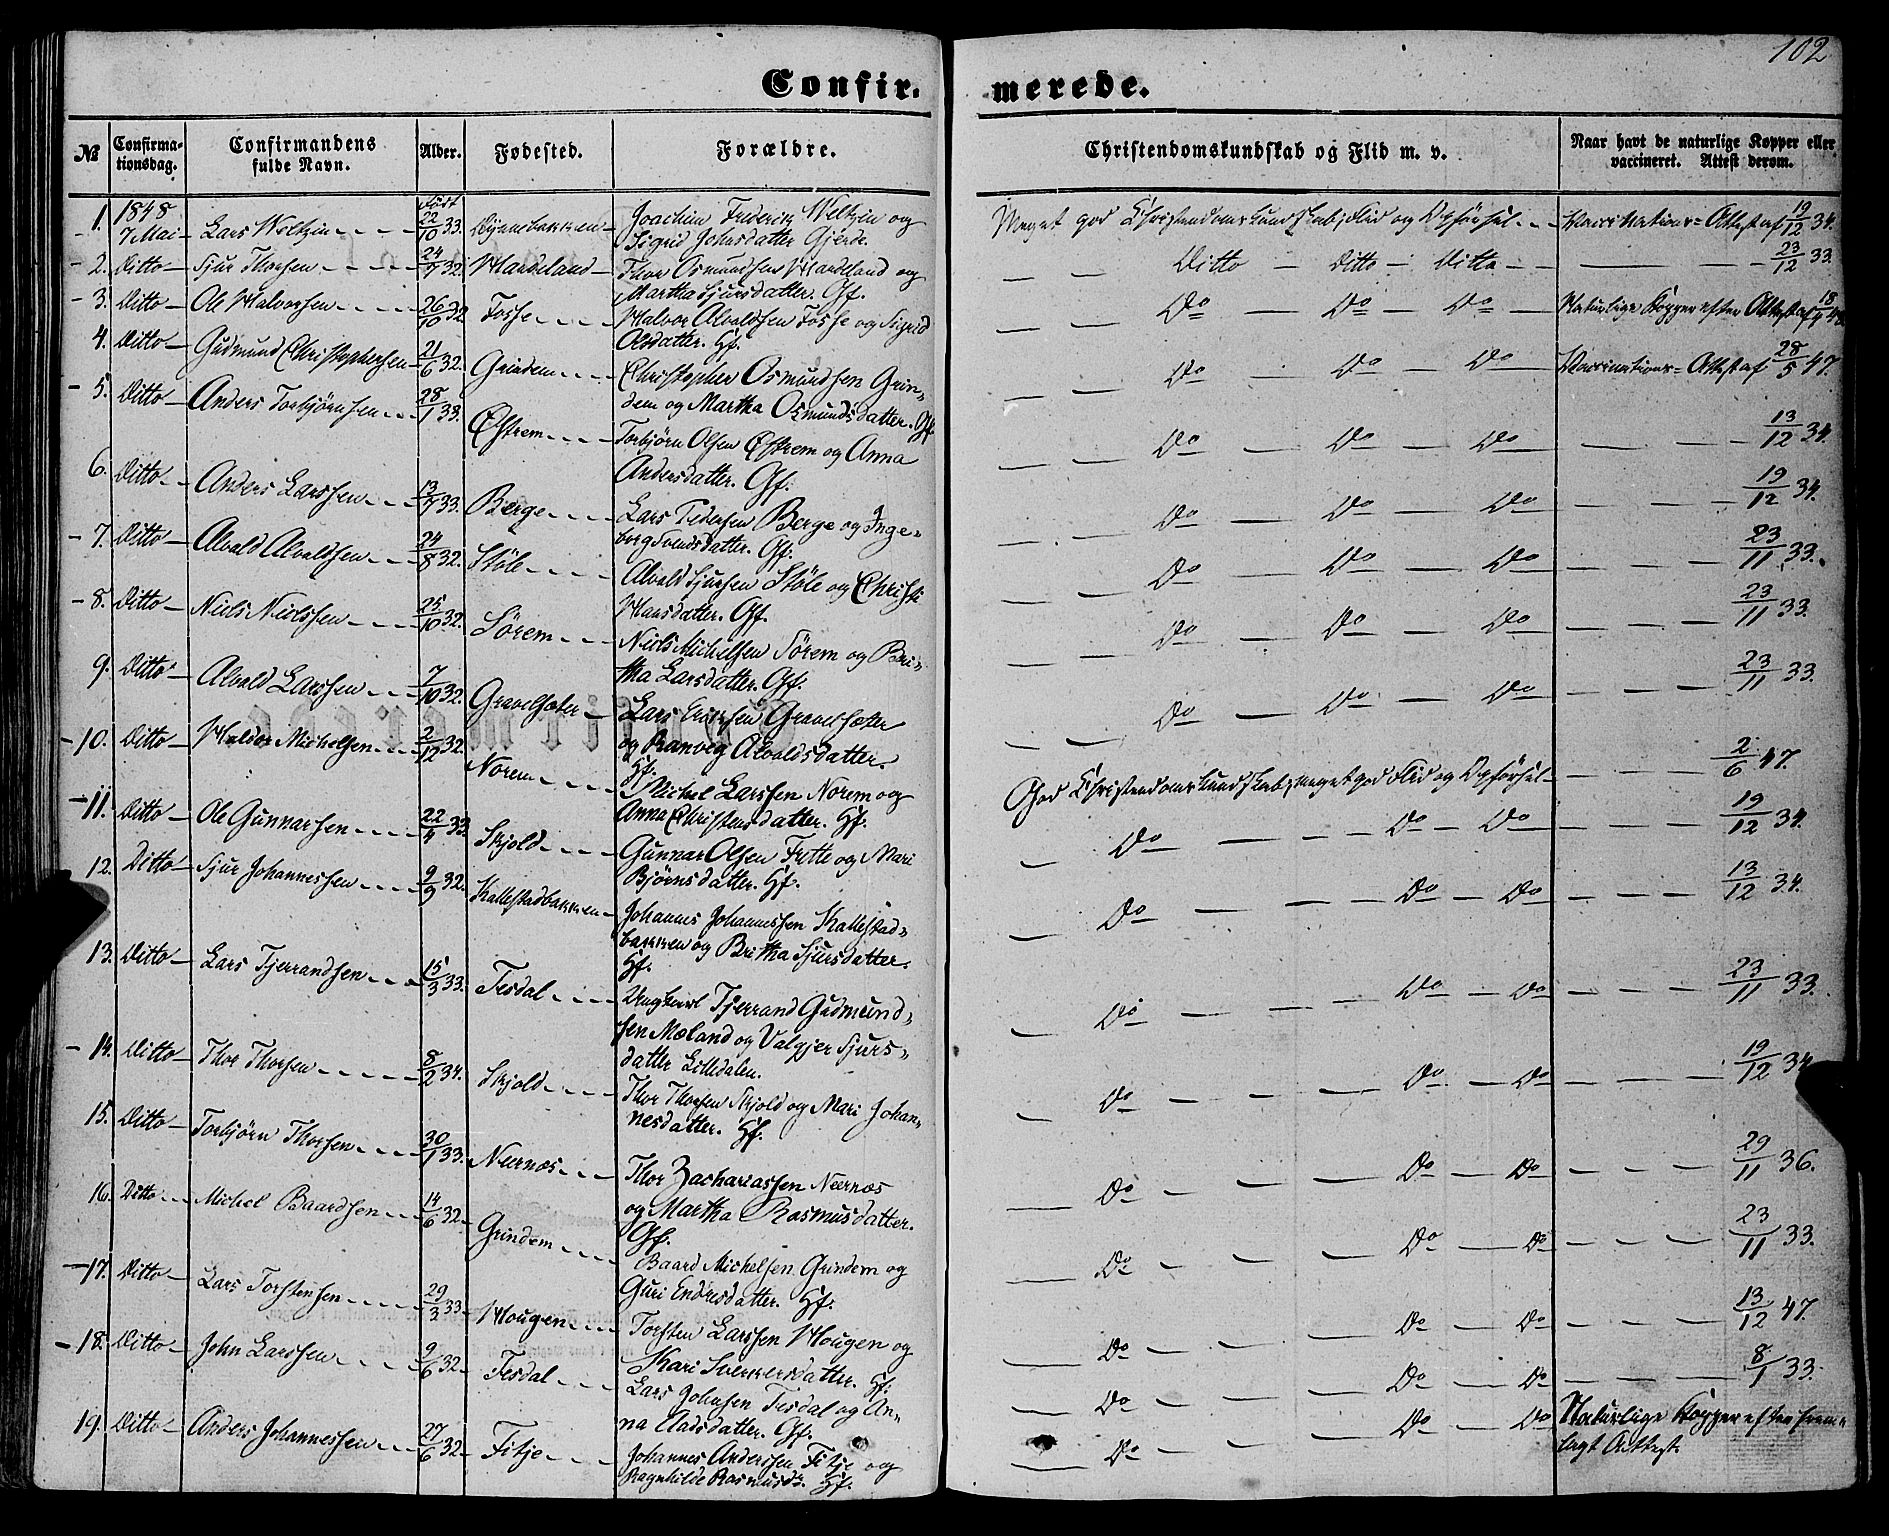 102
Confir. merede.
№ Confirma-tionsdag. Confirmandens fulde Navn. Alder. Fødested. Forældre. Christendomskundskab og Flid m. v. Naar havt de naturlige Kopper eller vaccineret. Attest derom.
1. 1848 7 Mai – Lars Weltzin – Født 22/10 33. – Joachim Frederik Weltzin og Sigrid Johnsdatter Gjerde. Meget god Christendomskundskab, Flid og Opførsel – Vaccinations=Attest af 19/12 34.
2. Ditto – Sjur Thorsen – 24/7 32. Hardeland – Thor Osmundsen Hardeland og Martha Sjursdatter. Gf. – – Ditto – Ditto – Ditto – 23/12 33.
3. Ditto – Ole Halvorsen – 26/10 32 Fosse – Halvor Alvaldsen Fosse og Sigrid Olsdatter. Hf. – – Do – Do – Do – Naturlige Kopper efter Attest af
4. Ditto – Gudmund Christophersen – 21/6 32. Grindem – Christopher Osmundsen Grin=dem og Martha Osmundsdatter. Gf. – – Do – Do – Do – Vaccinations=Attest af 28/5 47.
5. Ditto – Anders Torbjørnsen – 28/1 33. Østrem – Torbjørn Olsen Østrem og Anna Andersdatter. Gf. – – Do – Do – Do – – 13/12 34.
6. Ditto – Anders Larssen – 13/7 33. Berge – Lars Pedersen Berge og Inge=borg Svendsdatter. Gf. – – Do – Do – Do – – 19/12 34.
7. Ditto – Alvald Alvaldsen – 24/8 32. Støle – Alvald Sjursen Støle og Christi Hansdatter. Gf. – – Do – Do – Do – – 23/11 33.
8. Ditto – Niels Nielssen – 25/10 32. Sørem – Niels Michelsen Sørem og Bri=tha Larsdatter. Gf. – – Do – Do – Do – – 23/11 33.
9. Ditto – Alvald Larssen – 7/10 32. Gravelsæter – Lars Gravelsæter og Ranveg Alvaldsdatter. Hf. – – Do – Do – Do – – 23/11 33.
10. Ditto – Haldor Michelsen – 2/12 32. Norem – Michel Larssen Norem og Anna Christensdatter. Hf. God Christendomskundskab, meget god Flid og Opførsel – – 2/6 47.
11. Ditto – Ole Gunnarsen – 22/4 33. Skjold – Gunnar Olsen Frette og Mari Bjørnsdatter. Hf. – Do – – Do – Do – – 19/12 34.
12. Ditto – Sjur Johannessen – 9/9 32. Kallestadbakken – Johannes Johannessen Kallestad=bakken og Britha Sjursdatter. Hf. – Do – – Do – Do – – 13/12 34.
13. Ditto – Lars Tjerrandsen – 15/3 33. Tesdal – Ungkarl Tjerrand Gudmund=sen Mæland og Valgjer Sjurs=datter Lilledalen. – Do – – Do – Do – – 23/11 33.
14. Ditto – Thor Thorsen – 8/2 34. Skjold – Thor Thorsen Skjold og Mari Johan=nesdatter. Hf. – Do – – Do – Do – – 19/12 34
15. Ditto – Torbjørn Thorsen – 30/1 33. Neernæs – Thor Zachariassen Neernæs og Martha Rasmusdatter. Gf. – Do – – Do – Do – – 29/11 36.
16. Ditto – Michel Baardsen – 14/6 32. Grindem – Baard Michelsen Grindem og Guri Endresdatter. Hf. – Do – – Do – Do – – 23/11 33.
17. Ditto – Lars Torstensen – 29/3 33. Hougen – Torsten Larssen Hougen og Kari Sverkersdatter. Hf. – Do – – Do – Do – – 13/12 47.
18. Ditto – John Larssen – 9/6 32. Tesdal – Lars Johnsen Tesdal og An=na Aadsdatter. Gf. – Do – – Do – Do – – 8/1 33.
19. Ditto – Anders Johannessen – 27/6 32. Fitje – Johannes Anderssen Fitje og Ragnhilde Rasmusdr. Hf. – Do – – Do – Do Naturlige Kopper efter frem=lagt Attest.